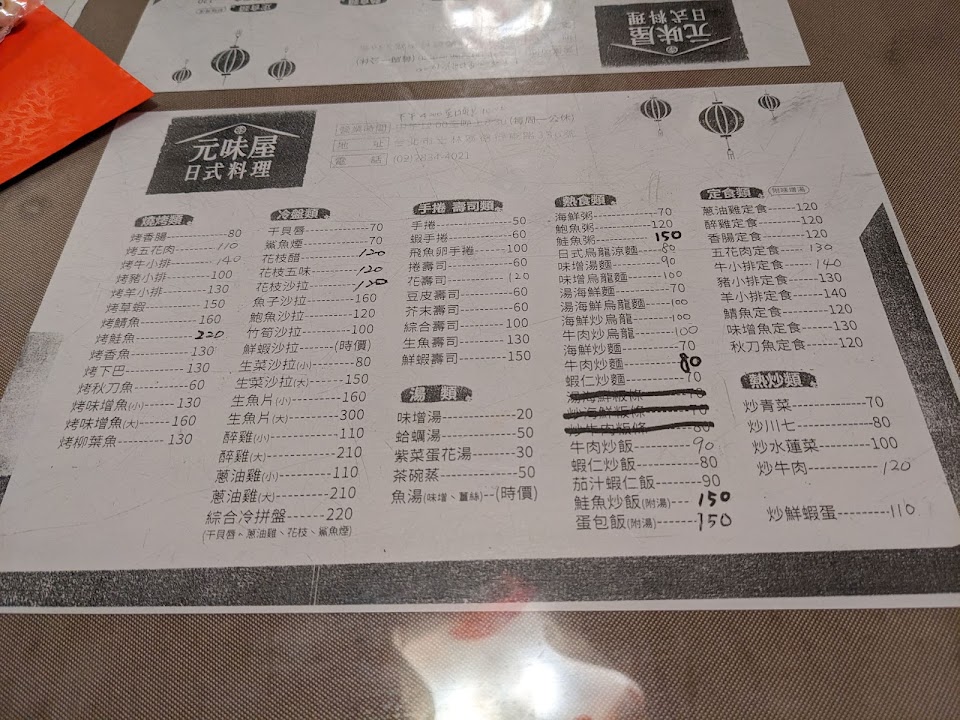 元味屋
日式料理
元味屋
日式料理
營業時間
(每周一公休)
地 址
電 話
燒烤類
烤香腸 80
烤五花肉 110
烤牛小排 140
烤豬小排 100
烤羊小排 130
烤草蝦 150
烤鯖魚 160
烤鮭魚 220
烤香魚 130
烤下巴 130
烤秋刀魚 60
烤味增魚(小) 130
烤味增魚(大) 160
烤柳葉魚 130
冷盤類
干貝唇 70
鯊魚煙 70
花枝醋 120
花枝五味 120
花枝沙拉 120
魚子沙拉 160
鮑魚沙拉 120
竹筍沙拉 100
鮮蝦沙拉 (時價)
生菜沙拉(小) 80
生菜沙拉(大) 150
生魚片(小) 160
生魚片(大) 300
醉雞(小) 110
醉雞(大) 210
蔥油雞(小) 110
蔥油雞(大) 210
綜合冷拼盤 220
(干貝唇、蔥油雞、花枝、鯊魚煙)
手捲 壽司類
手捲 50
蝦手捲 60
飛魚卵手捲 100
捲壽司 60
花壽司 120
豆皮壽司 60
芥末壽司 60
綜合壽司 100
生魚壽司 130
鮮蝦壽司 150
湯 類
味增湯 20
蛤蠣湯 50
紫菜蛋花湯 30
茶碗蒸 50
魚湯(味增、薑絲) (時價)
熱食類
海鮮粥 70
鮑魚粥 120
鮭魚粥 150
日式烏龍涼麵 80
味增湯麵 90
味增烏龍麵 100
湯海鮮麵 70
湯海鮮烏龍麵 100
海鮮炒烏龍 100
牛肉炒烏龍 100
海鮮炒麵 70
牛肉炒麵 80
蝦仁炒麵 70
湯海鮮粄條 70
炒海鮮粄條 70
炒牛肉粄條 80
牛肉炒飯 90
蝦仁炒飯 80
茄汁蝦仁飯 90
鮭魚炒飯(附湯) 150
蛋包飯(附湯) 150
定食類 附味增湯
蔥油雞定食 120
醉雞定食 120
香腸定食 120
五花肉定食 130
牛小排定食 140
豬小排定食 130
羊小排定食 140
鯖魚定食 120
味增魚定食 130
秋刀魚定食 120
熱炒類
炒青菜 70
炒川七 80
炒水蓮菜 100
炒牛肉 120
炒鮮蝦蛋 110